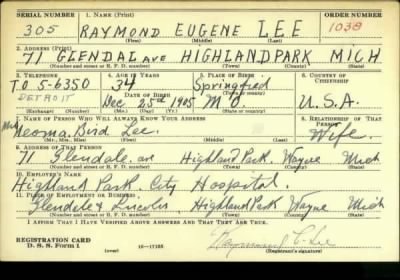 SERIAL NUMBER 1. NAME (Print) ORDER NUMBER
305 RAYMOND EUGENE LEE 1038
(First) (Middle) (Last)
2. ADDRESS (Print)
71 GLENDAL ave HIGHLAND PARK MICH
(Number and street or R. F. D. number) (Town) (County) (State)
3. TELEPHONE 4. AGE IN YEARS 5. PLACE OF BIRTH 6. COUNTRY OF CITIZENSHIP
TO 5-6350 34 Springfied
DETROIT DATE OF BIRTH (Town or county)
Dec 25th 1905 MO. U.S.A.
(Exchange) (Number) (Mo.) (Day) (Yr.) (State or country)
7. NAME OF PERSON WHO WILL ALWAYS KNOW YOUR ADDRESS 8. RELATIONSHIP OF THAT PERSON
Mrs Neoma Bird Lee. Wife.
(Mr., Mrs., Miss) (First) (Middle) (Last)
9. ADDRESS OF THAT PERSON
71 Glendale. ave Highland Park. Wayne Mich
(Number and street or R. F. D. number) (Town) (County) (State)
10. EMPLOYER'S NAME
Highland Park. City Hospital.
11. PLACE OF EMPLOYMENT OR BUSINESS
Glendale & Lincoln, Highland Park Wayne Mich
(Number and street or R. F. D. number) (Town) (County) (State)
I AFFIRM THAT I HAVE VERIFIED ABOVE ANSWERS AND THAT THEY ARE TRUE.
REGISTRATION CARD
D. S. S. Form 1 16-17105 Raymond E. Lee
(over) (Registrant's signature)